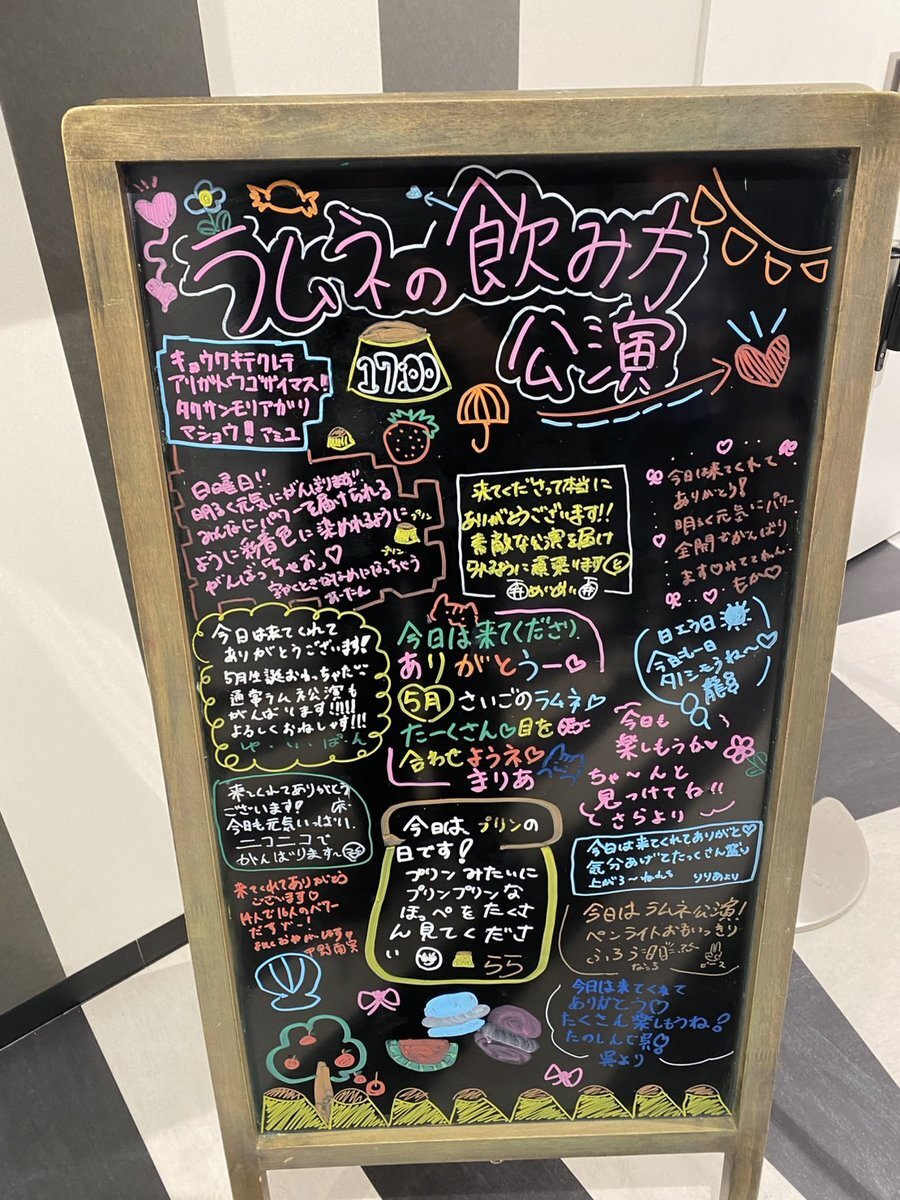 ラムネの飲み方
公演
17:00
キョウワキテクレテ
アリガトウゴザイマス!!
タクサンモリアガリ
マショウ! アミユ
日曜日!!
明るく元気にがんばります!!
みんなにパワーを届けられる
ように彩音色に染めれるように
がんばっちゃお♡
プリン
プリン
来てくださって本当に
ありがとうございます!!
素敵な公演を届け
られるように頑張ります
めいめい
今日は来てくれて
ありがとう!
明るく元気にパワー
全開でがんばり
ます♡みててねん
もか♡
今日は来てくれて
ありがとうございます!
5月生誕おわっちゃた
通常ラムネ公演も
がんばります!!!!!
よろしくおねしゃす!!!
ゆいぽん
今日は来てくださり
ありがとうー♡
5月 さいごのラムネ♡
たーくさん♡目を
合わせようネ♡
きりあ
今日も一日
タノシモうね〜♡
今日も
楽しもうか♡
ちゃ〜んと
見つけてね!!
さらより
来てくれてありがとう
ございます!
今日も元気いっぱい
ニコニコで
がんばります〜
今日は プリンの
日です!
プリンみたいに
プリンプリンな
ほっぺをたくさ
ん見てくださ
い
らら
今日は来てくれてありがと♡
気分あげてたっくさん盛り
上がろ〜ねれる りりあより
来てくれてありがとう
ございます♡
14人で16人のパワー
だすぞ〜!
今日はラムネ公演!
ペンライトおもいっきり
ふろう
今日は来てくれて
ありがとう♡
たくさん楽しもうね!
たのしんで呉!
呉より